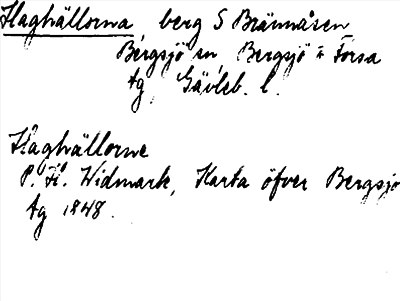 Haghällorna berg S Brännåsen
Bergsjö sn, Bergsjö o Forsa
tg Gävleb. l.
Haghällorne
P. H. Widmark, Karta öfver Bergsjö
tg 1848.